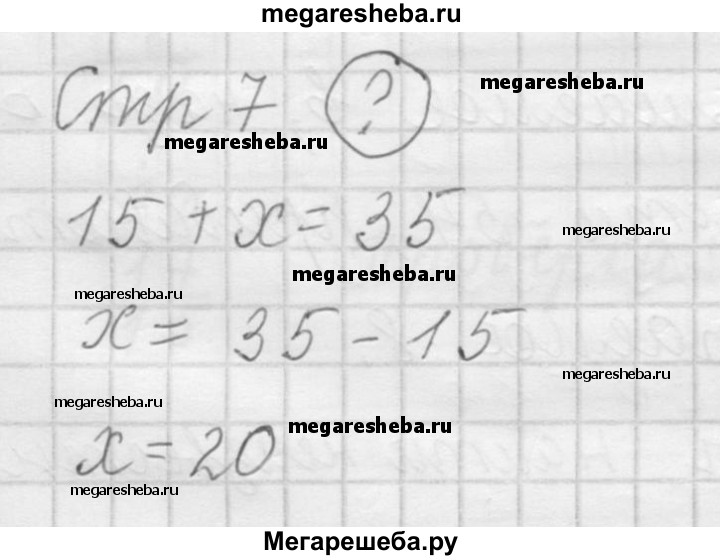 megaresheba.ru
Стр 7 ?
megaresheba.ru
megaresheba.ru
15 + x = 35
megaresheba.ru
megaresheba.ru
megaresheba.ru
x = 35 - 15
megaresheba.ru
megaresheba.ru
x = 20
megaresheba.ru
megaresheba.ru
Мегарешеба.ру